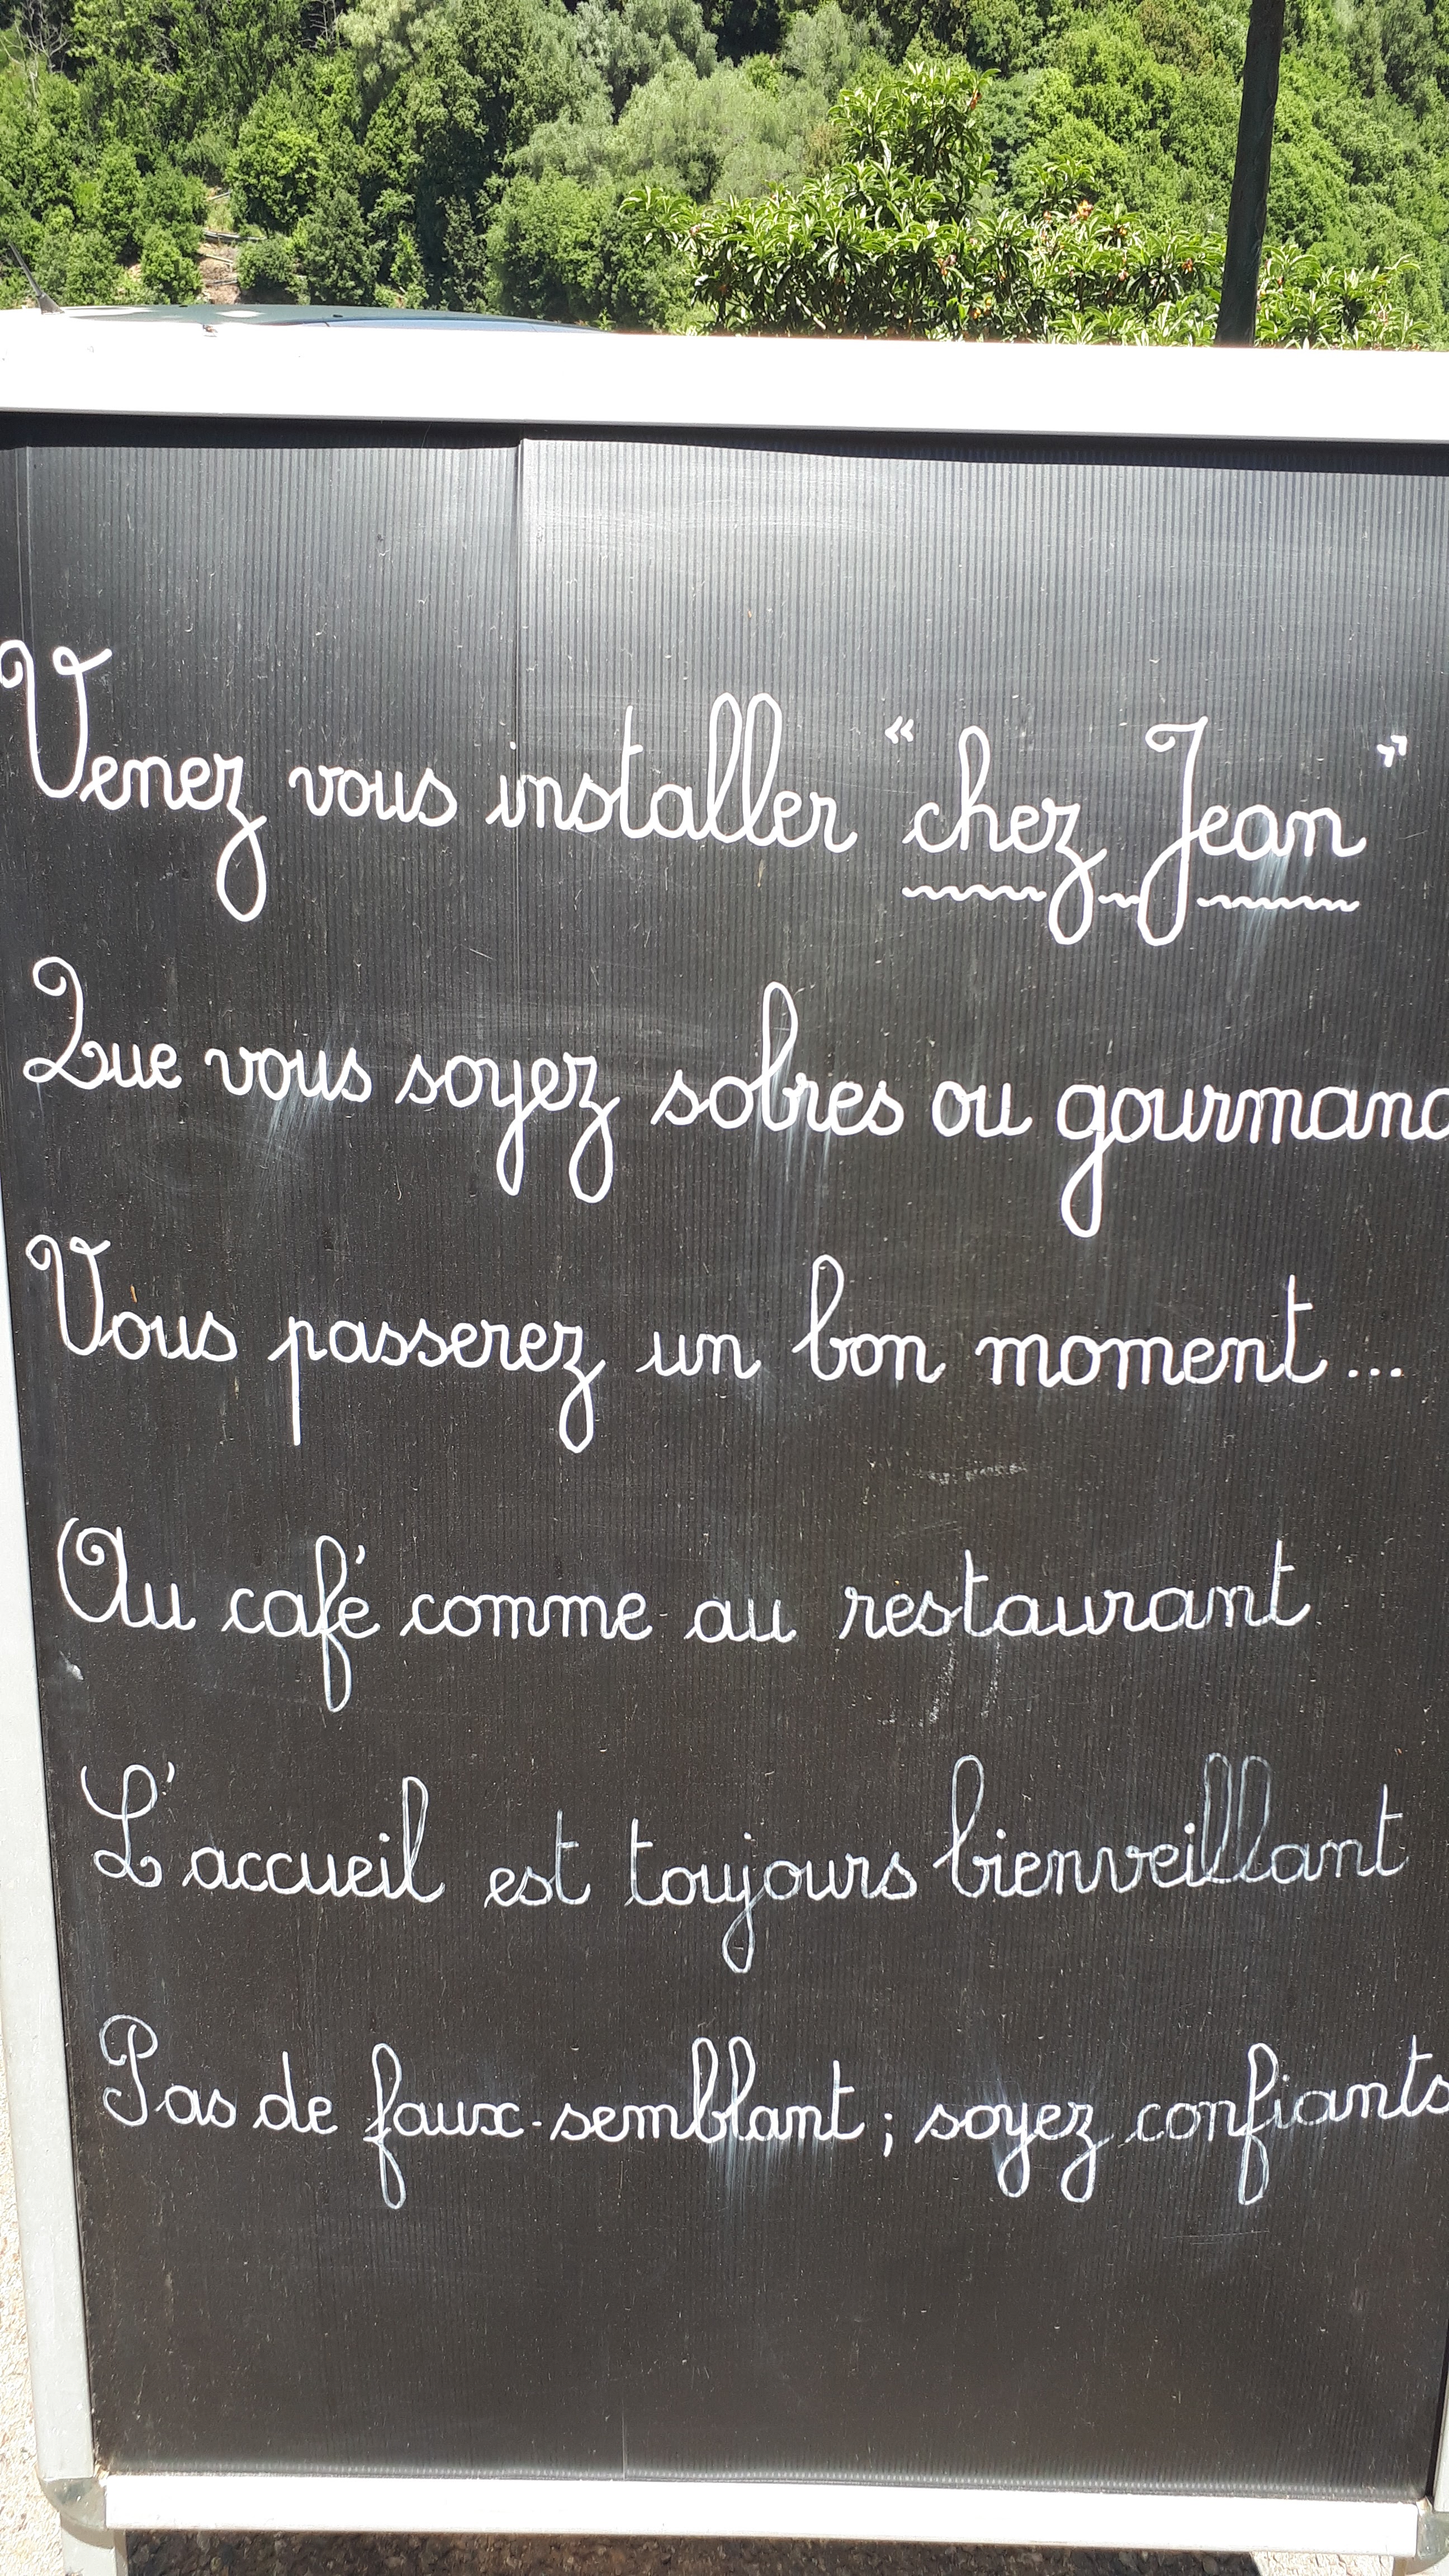 Venez vous installer "chez Jean"
Que vous soyez sobres ou gourmand
Vous passerez un bon moment...
Au café comme au restaurant
L'accueil est toujours bienveillant
Pas de faux-semblant ; soyez confiants